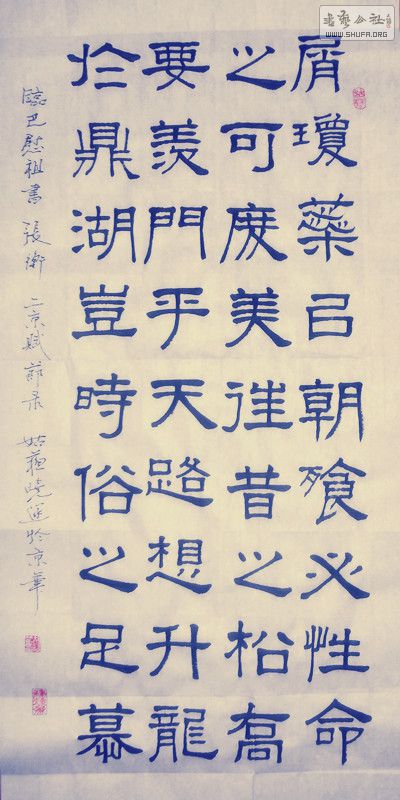 屑瓊蘂㠯朝飱必性命
之可度美往昔之松喬
要羨門乎天路想升龍
於鼎湖豈時俗之足慕
臨巴慰祖書張衡二京賦節录 姑蘇曉逆於京華
書藝公社
WWW.SHUFA.ORG